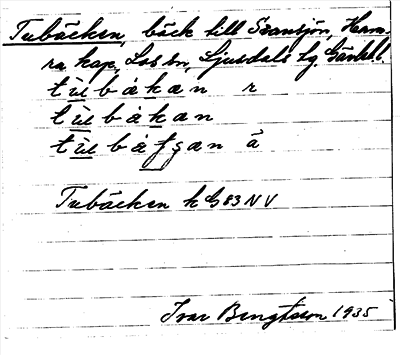 Tubäcken, bäck till Svansjön, Ham-
ra kap, Los sn, Ljusdals tg. Gävlebl.
tùbåkan r
tùbåkan
tùbåfgan ä
Tubäcken k G 83 N V
Ivar Bengtsson 1935